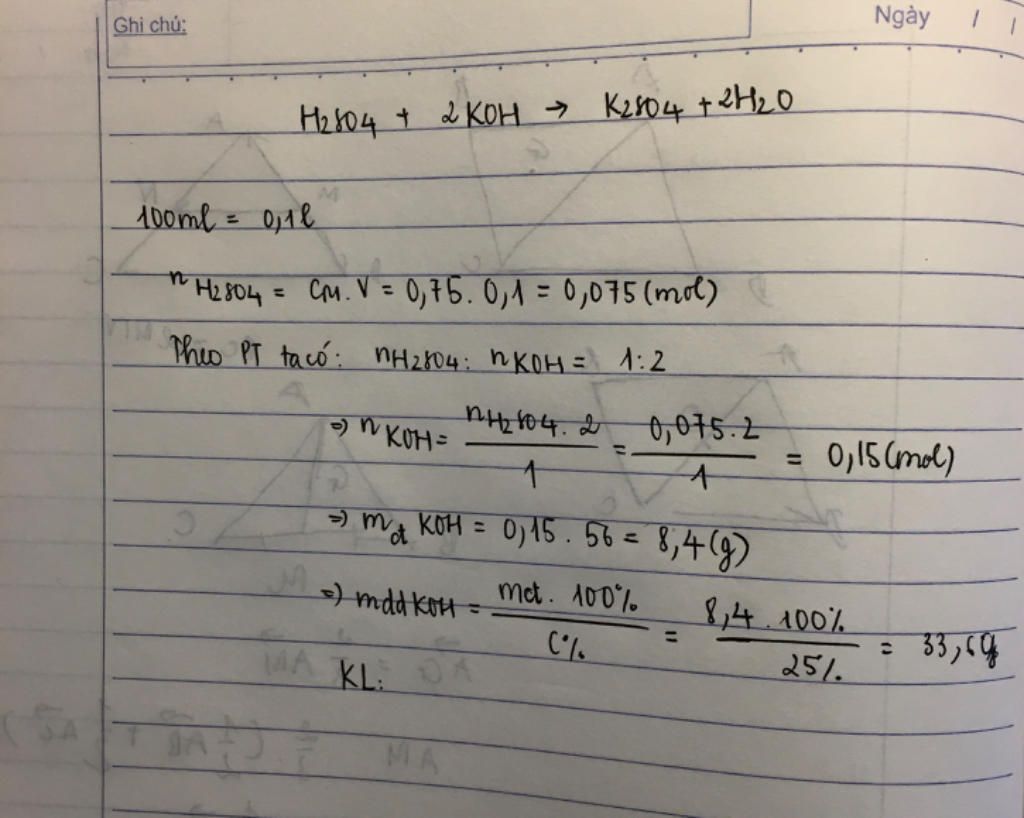 Ghi chú:
Ngày / /
H2SO4 + 2KOH → K2SO4 + 2H2O
100ml = 0,1l
nH2SO4 = CM.V = 0,75. 0,1 = 0,075 (mol)
Theo PT ta có: nH2SO4: nKOH = 1:2
⇒ nKOH = nH2SO4. 2 / 1 = 0,075. 2 / 1 = 0,15 (mol)
⇒ mct KOH = 0,15. 56 = 8,4 (g)
⇒ mdd KOH = mct. 100% / C% = 8,4. 100% / 25% = 33,6g
KL: